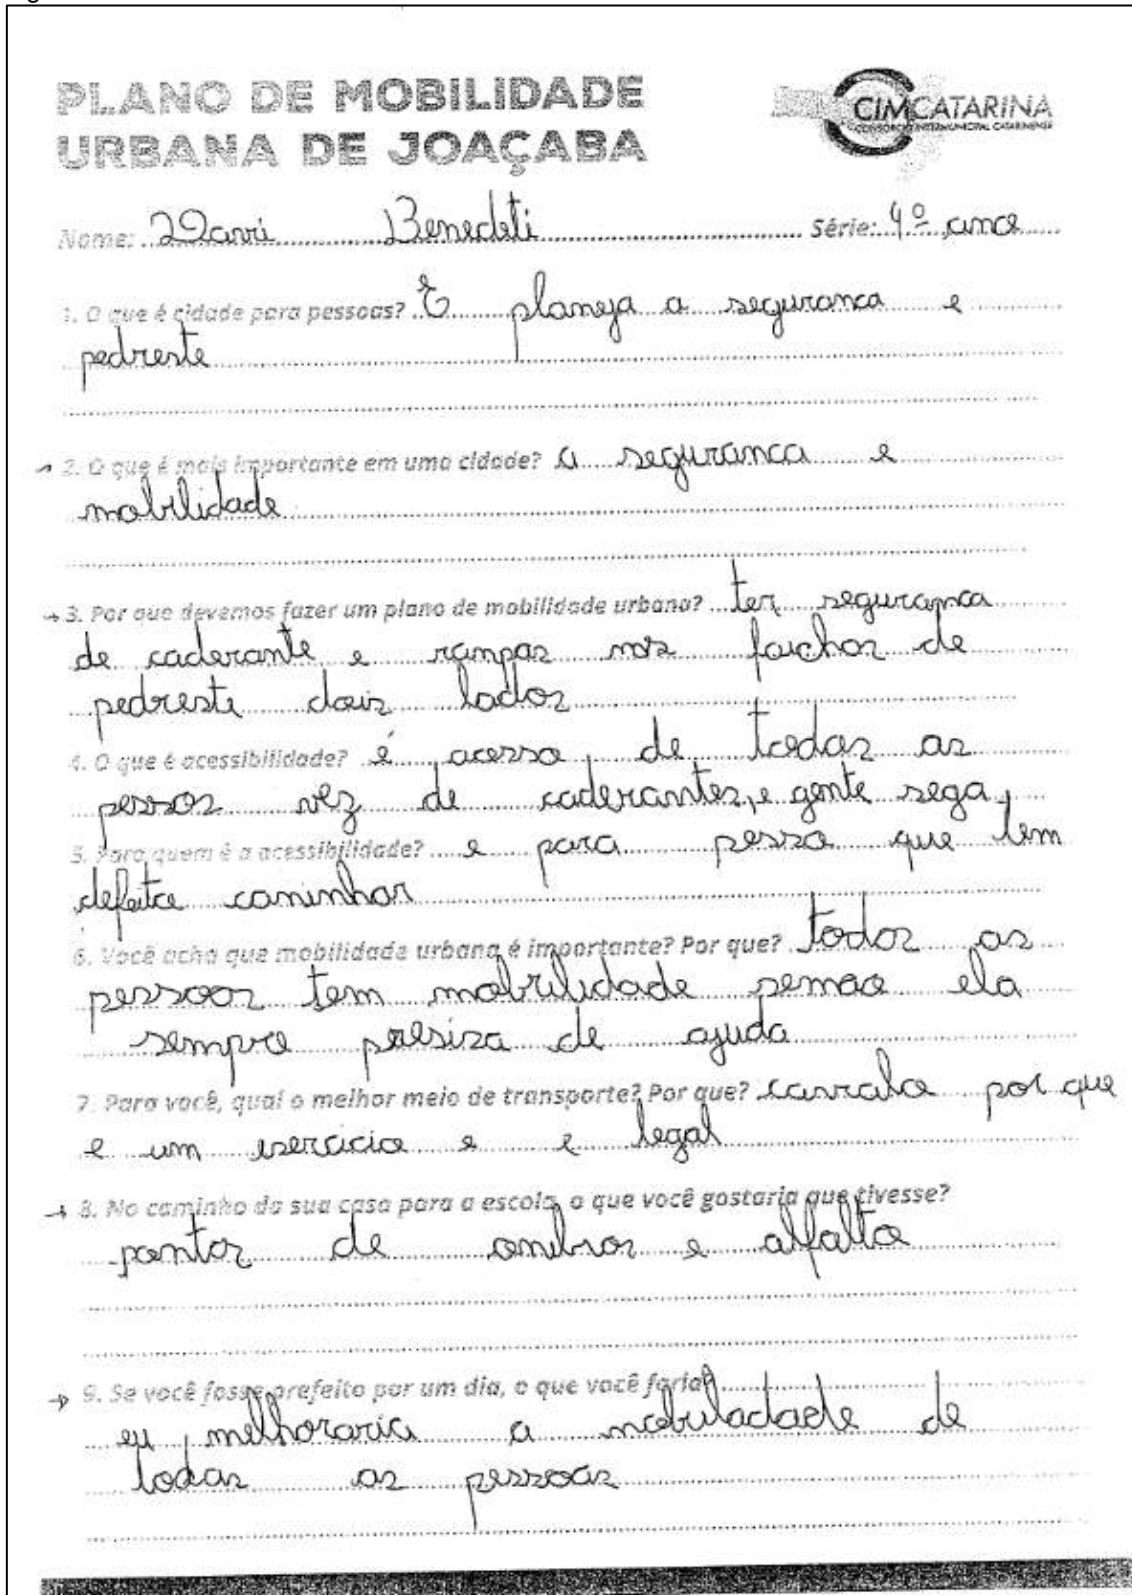 PLANO DE MOBILIDADE
URBANA DE JOAÇABA
CIMCATARINA
CONSÓRCIO INTERMUNICIPAL CATARINENSE
Nome: Benedeti Série: 4º ano
1. O que é cidade para pessoas? É planeja a seguranca e
pedreste
2. O que é mais importante em uma cidade? a seguranca e
mobilidade
3. Por que devemos fazer um plano de mobilidade urbana? ter seguranca
de caderante e rampas nos faichas de
pedresti dois lados
4. O que é acessibilidade? é acesso de todas as
pessos vez de caderantes, e gente sega
5. Para quem é a acessibilidade? e para pessoa que tem
defeito caminhar
6. Você acha que mobilidade urbana é importante? Por que? todos as
pessoas tem mobilidade senão ela
sempre presiza de ajuda
7. Para você, qual o melhor meio de transporte? Por que? cavalo por que
e um esercicio e e legal
8. No caminho da sua casa para a escola, o que você gostaria que tivesse?
pontos de onibros e alfalto
9. Se você fosse prefeito por um dia, o que você faria?
eu melhoraria a mobuladade de
todas as pessoas